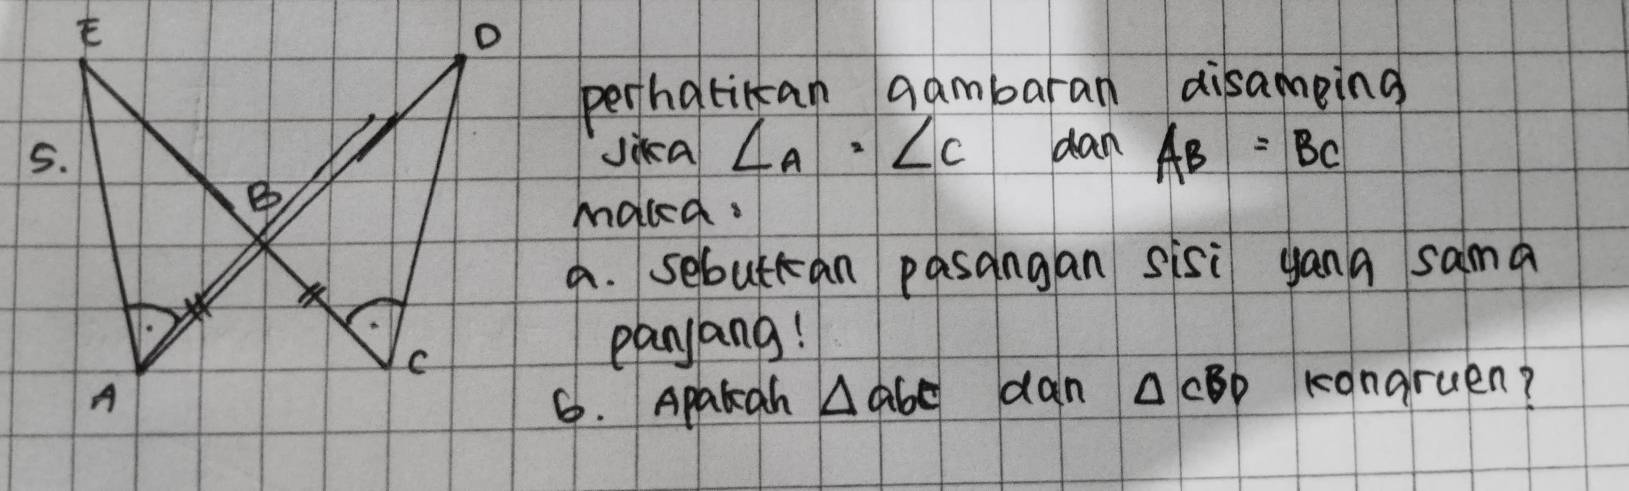 E
D
5.
B
A
C
perhatikan gambaran disamping
Jika ∠A = ∠C dan AB = BC
maka :
a. sebutkan pasangan sisi yang sama
panjang!
b. Apakah △ abE dan △ CBD kongruen?